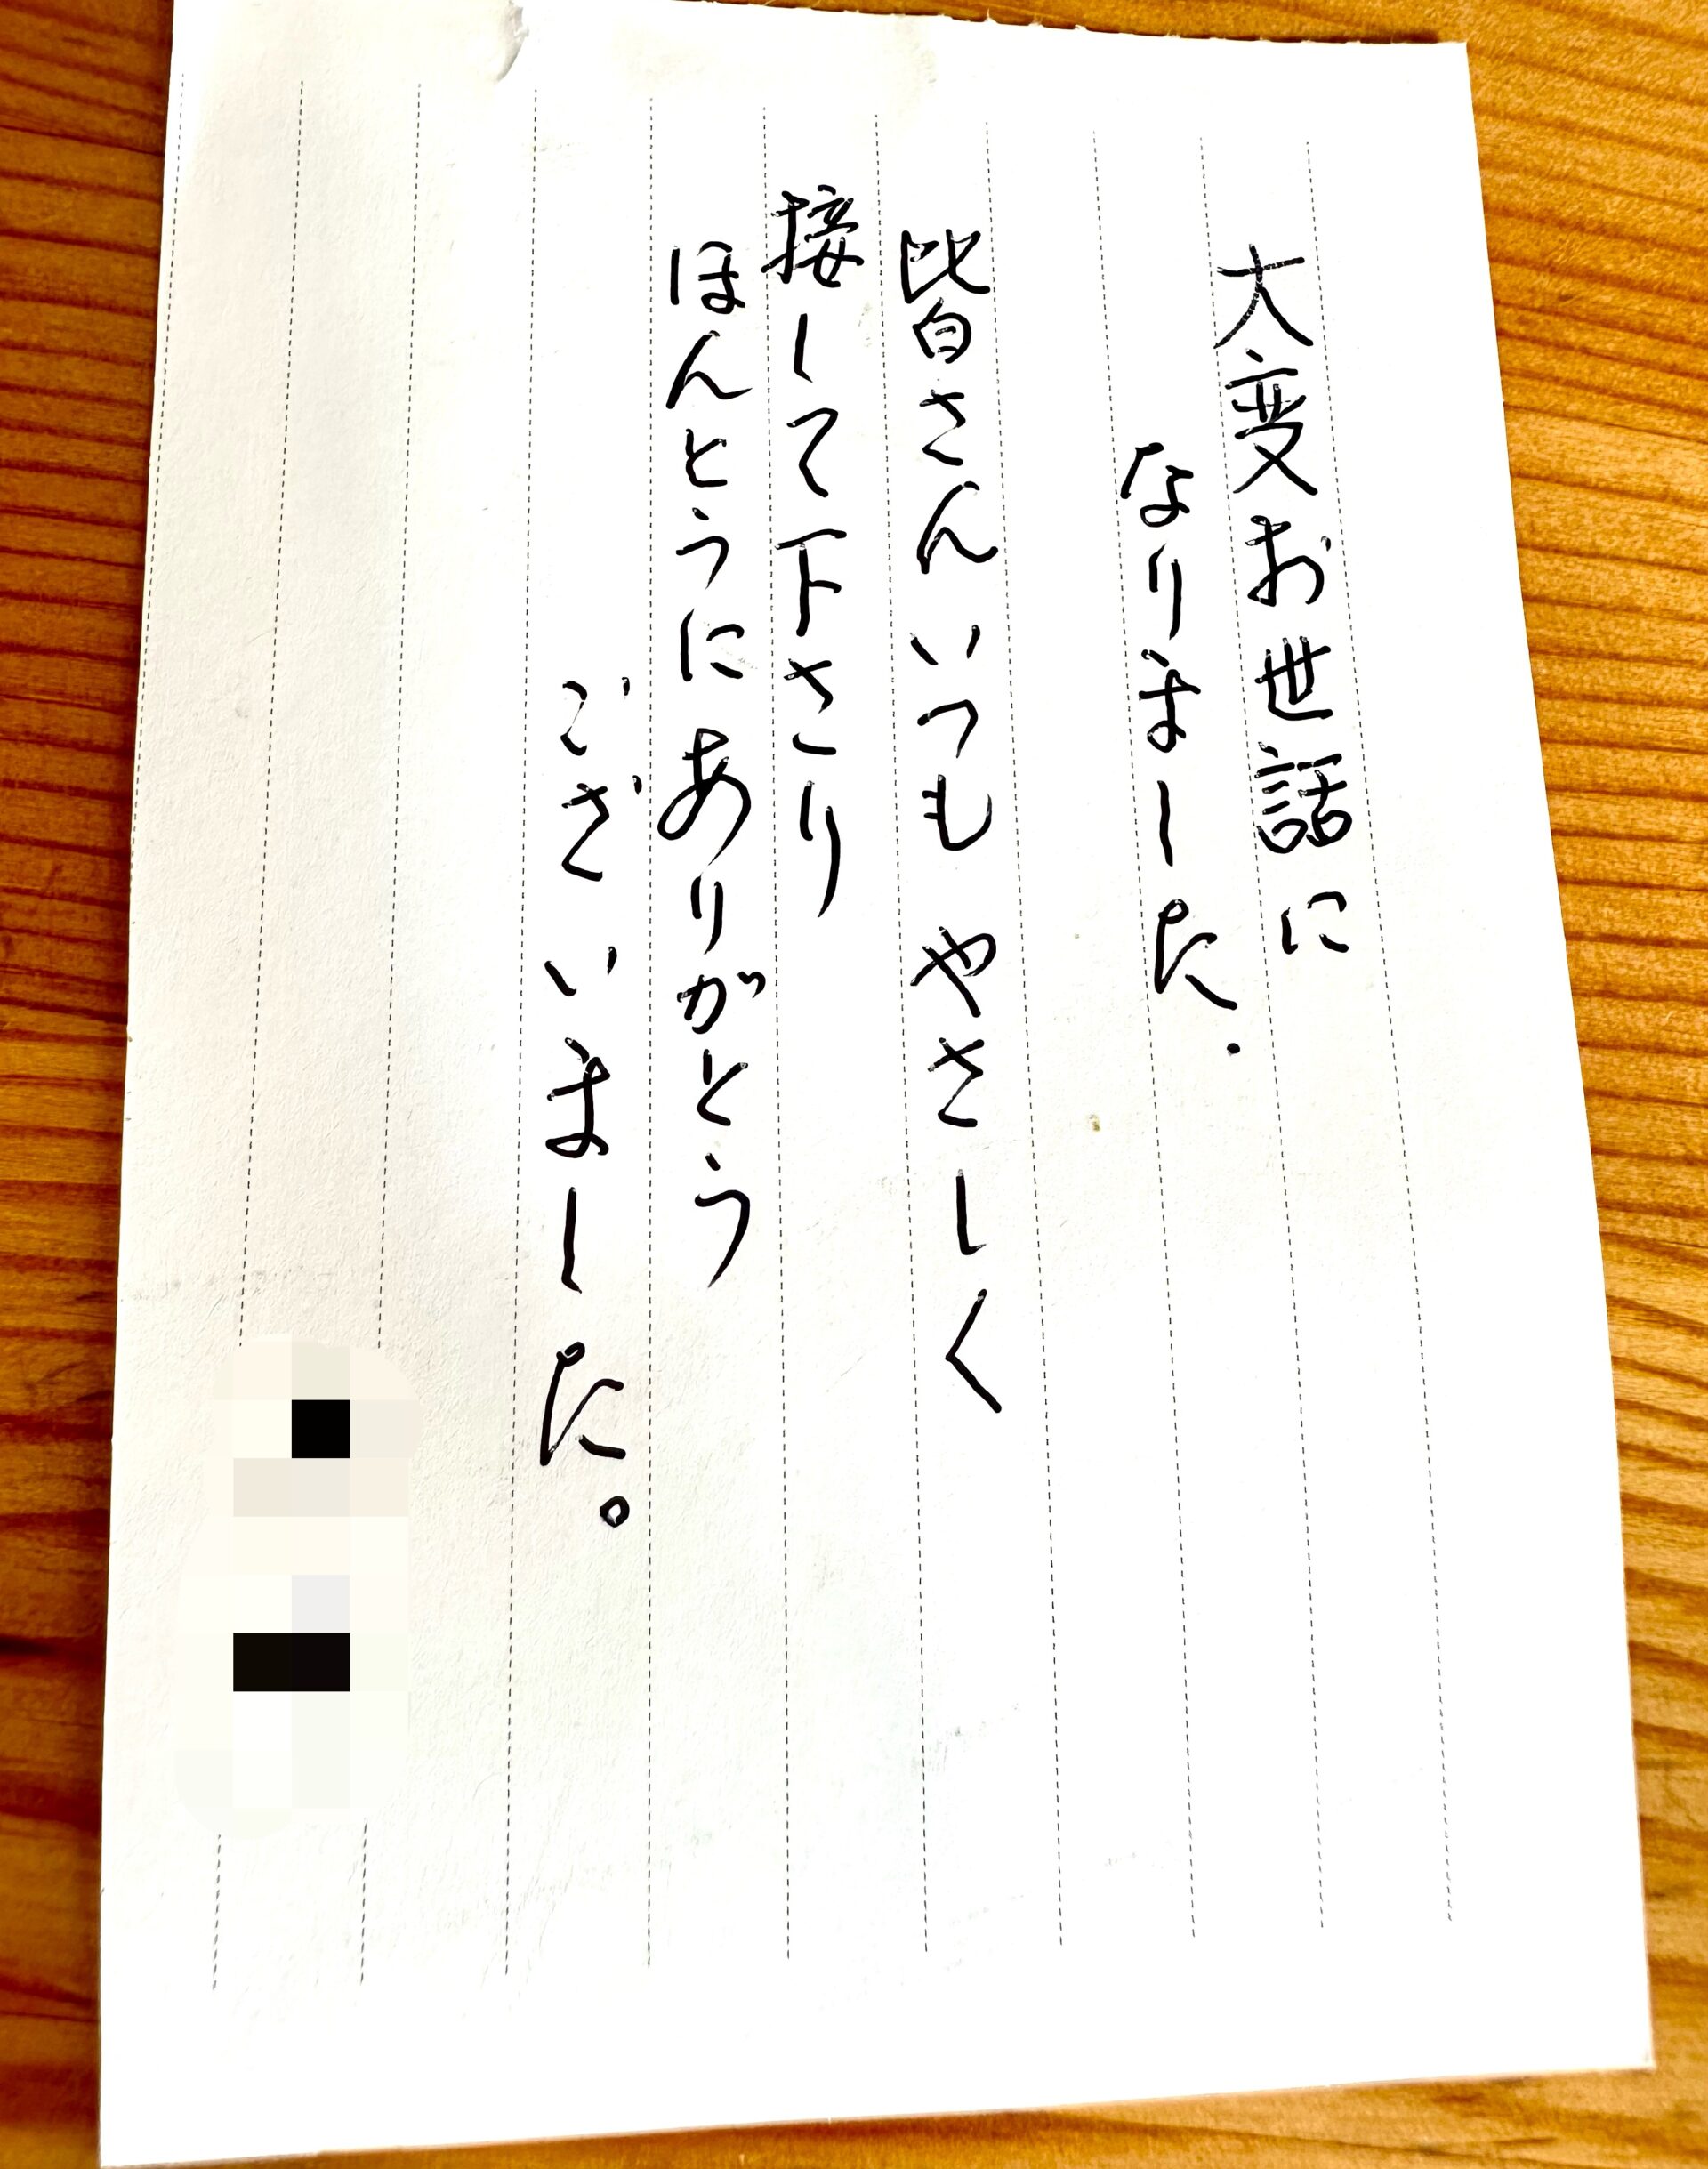 大変お世話に
なりました.
皆さんいつも やさしく
接して下さり
ほんとうにありがとう
ございました。